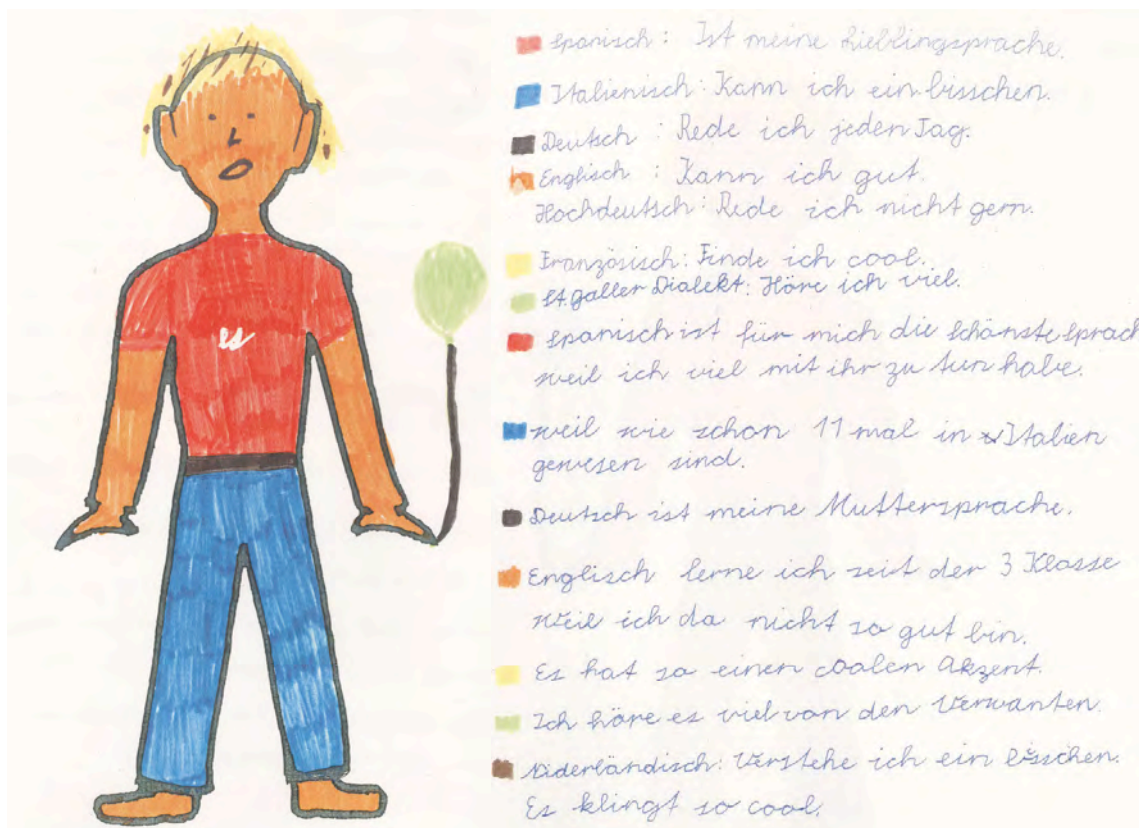 es
Spanisch: Ist meine Lieblingsprache.
Italienisch: Kann ich ein bisschen.
Deutsch : Rede ich jeden Tag.
Englisch : Kann ich gut.
Hochdeutsch: Rede ich nicht gern.
Französisch: Finde ich cool.
St. Galler Dialekt: Höre ich viel.
Spanisch ist für mich die schönste Sprach
weil ich viel mit ihr zu tun habe.
weil wie schon 11 mal in Italien
gewesen sind.
Deutsch ist meine Muttersprache.
Englisch lerne ich seit der 3 Klasse
weil ich da nicht so gut bin.
Es hat so einen coolen Akzent.
Ich höre es viel von den Verwanten.
Niderländisch: Verstehe ich ein bisschen.
Es klingt so cool.